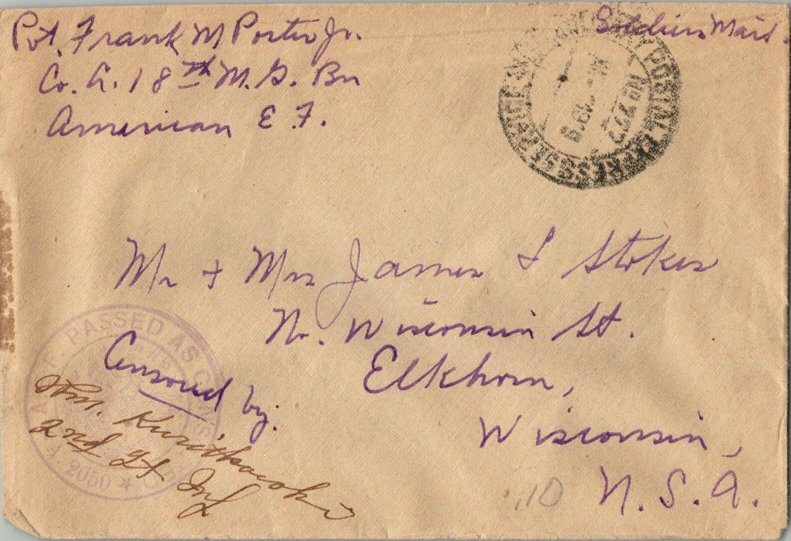 Pvt. Frank M Porter Jr.
Soldiers Mail.
Co. A. 18th M. G. Bn
American E. F.
POSTAL EXPRESS SERVICE
No 727
Mr + Mrs James S Stokes
No. Wisconsin St.
Elkhorn,
Wisconsin,
U. S. A.
A.E.F. PASSED AS CENSORED
A. 2050
Censored by:
2nd Lt Inf
.10